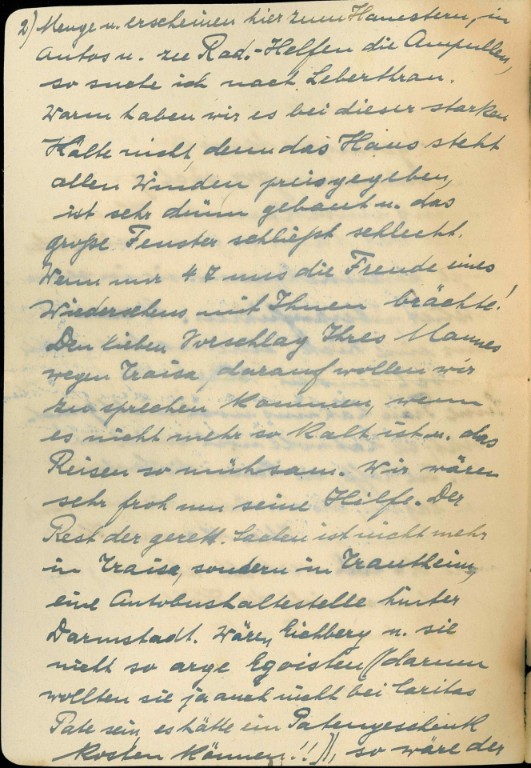 2) Menge u. erscheinen hier zum Hamstern, in
Autos u. zu Rad.- Helfen die Ampullen,
so suche ich nach Leberthran.
Warm haben wir es bei dieser starken
Kälte nicht, denn das Haus steht
allen Winden preisgegeben,
ist sehr dünn gebaut u. das
große Fenster schließt schlecht.
Wenn nur 47 uns die Freude eines
Wiedersehens mit Ihnen brächte!
Den lieben Vorschlag Ihres Mannes
wegen Traisa, darauf wollen wir
zu sprechen kommen, wenn
es nicht mehr so kalt ist u. das
Reisen so mühsam. Wir wären
sehr froh um seine Hilfe. Der
Rest der gerett. Sachen ist nicht mehr
in Traisa, sondern in Trautheim,
eine Autobushaltestelle hinter
Darmstadt. Wären Eichberg u. sie
nicht so arge Egoisten (darum
wollten sie ja auch nicht bei Caritas
Pate sein, es hätte ein Patengeschenk
kosten können!!), so wäre der